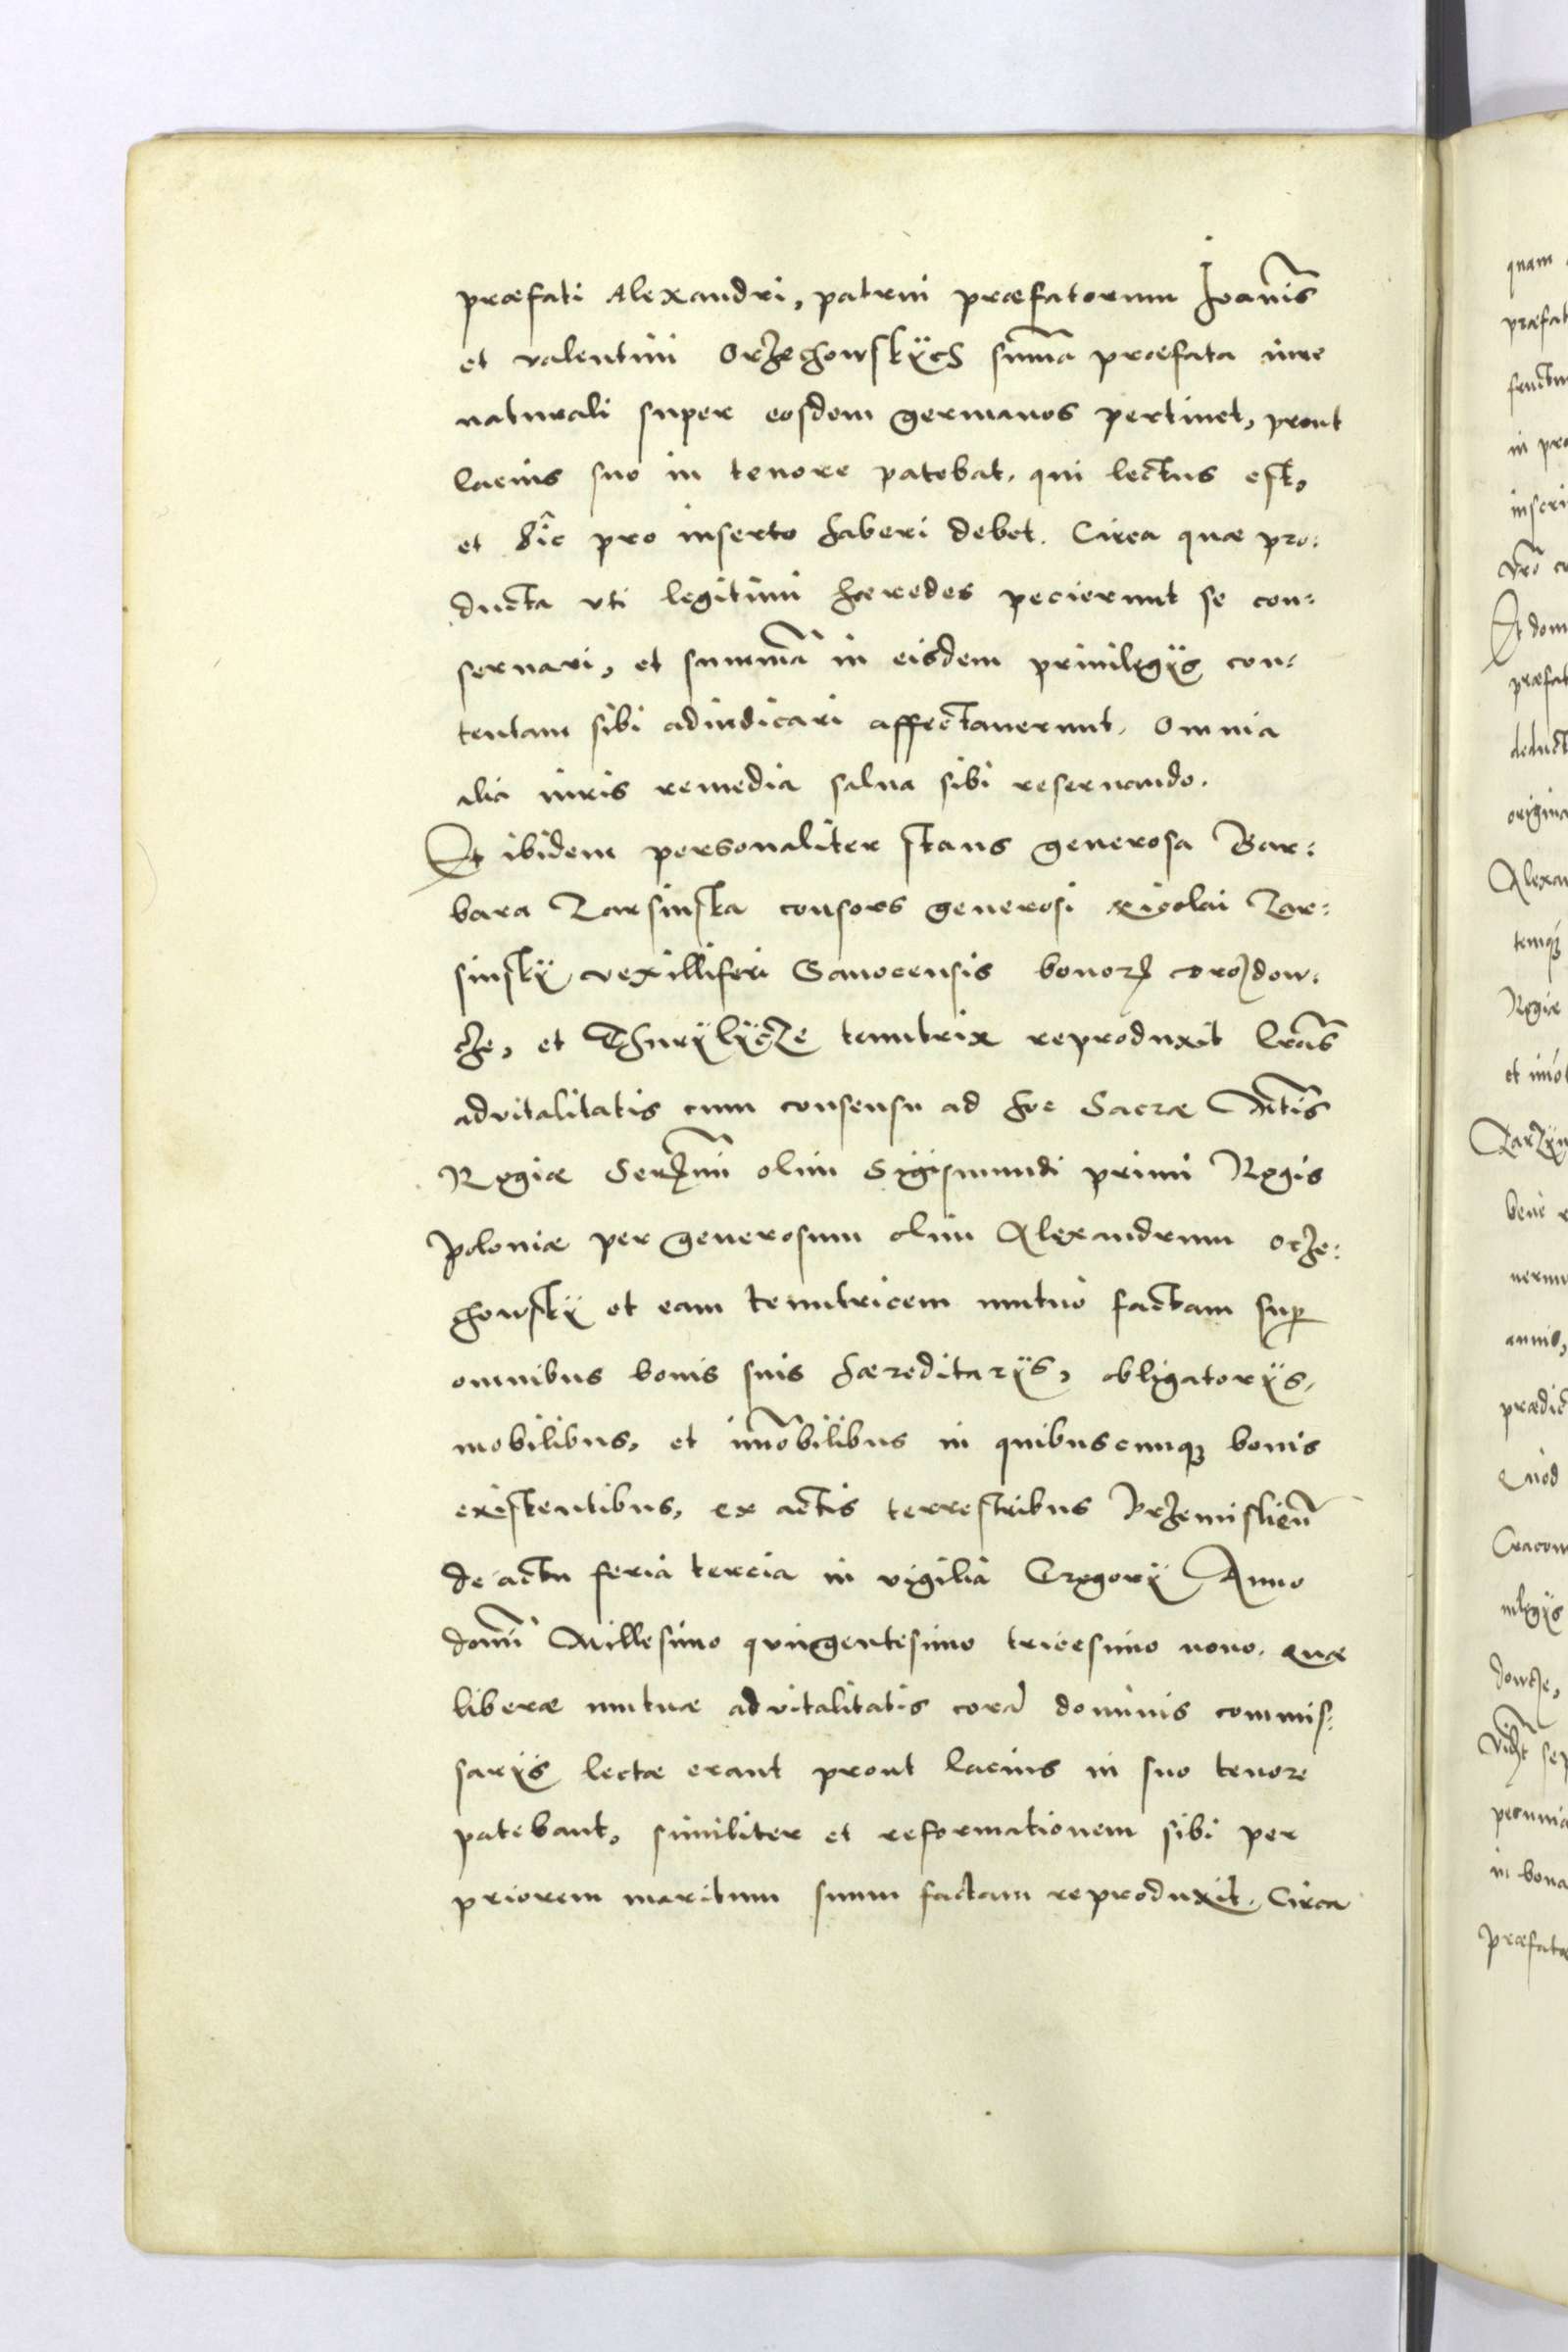 præfati Alexandri, patrui præfatorum Joañis
et valentini Orzechowskÿch sum̃a præfata iure
naturali super eosdem germanos pertinet, prout
lacius suo in tenore patebat, qui lectus est,
et hic pro inserto haberi debet. Circa quæ pro:
ducta vti legitimi hæredes pecierunt se con:
seruari, et summã in eisdem priuilegÿs con:
tentam sibi adiudicari affectauerunt, omnia
alia iuris remedia salua sibi reseruando.
Et ibidem personaliter stans generosa Bar:
bara Tarsinska consors generosi Nicolai Tar:
sinskÿ vexilliferi Sanocensis bonorȝ drozdow:
cze, et Thurÿlÿcze tenutrix reproduxit l̃ras
aduitalitatis cum consensu ad hoc Sacræ Mt̃is
Regiæ Serȝmi olim Sigismundi primi Regis
Poloniæ per generosum olim Alexandrum orze:
chowskÿ et eam tenutricem mutuo factam sup̱
omnibus bonis suis hæreditarÿs, obligatorÿs,
mobilibus, et im̃obilibus in quibuscunqȝ bonis
existentibus, ex actis terrestribus Przemislieñ
de actu feria tercia in vigilia Gregorÿ Anno
domĩ Millesimo quingentesimo tricesimo nono. quæ
literæ mutuæ aduitalitatis corã dominis commis:
sarÿs lectæ erant prout lacius in suo tenore
patebant, similiter et reformationem sibi per
priorem maritum suum factam reproduxit. Circa
quam
præfat
fructu
in pro
inseri
Et dom
præfat
deduct
origina
Alexan
temqȝ
Regiæ
et imo
Tarzÿn
bene
uerun
annis,
prædic
Quod
Cracou
uilegÿs
dowcze,
pecunia
in bona
præfata